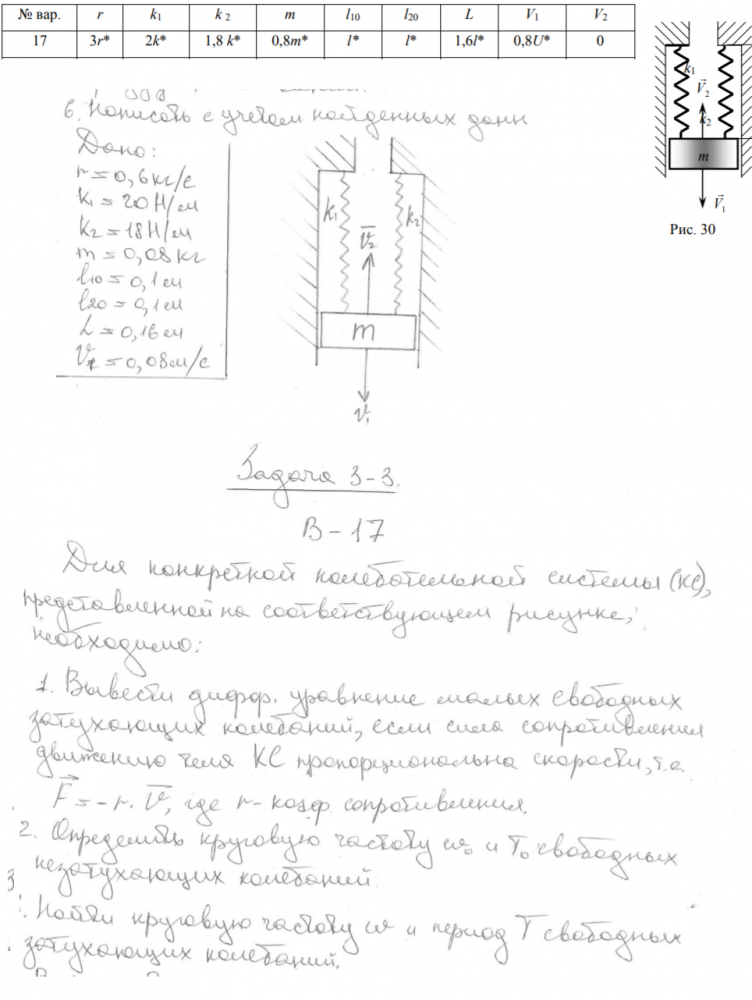 № вар. r k1 k 2 m l10 l20 L V1 V2
17 3r* 2k* 1,8 k* 0,8m* l* l* 1,6l* 0,8U* 0
k1
V2
k2
m
V1
Рис. 30
6. Написать с учетом найденных данн
Дано:
r = 0,6 кг/с
k1 = 20 Н/м
k2 = 18 Н/м
m = 0,08 кг
l10 = 0,1 м
l20 = 0,1 м
L = 0,16 м
V1 = 0,08 м/с
k1
V2
k2
m
V1
Задача 3-3.
В - 17
Для конкретной колебательной системы (КС),
представленной на соответствующем рисунке,
необходимо:
1. Вывести диффер. уравнение малых свободных
затухающих колебаний, если сила сопротивления
движению тела КС пропорциональна скорости, т.е.
F = - r · V, где r - коэф. сопротивления.
2. Определить круговую частоту ω0 и T0 свободных
незатухающих колебаний.
Найти круговую частоту ω и период T свободных
затухающих колебаний.